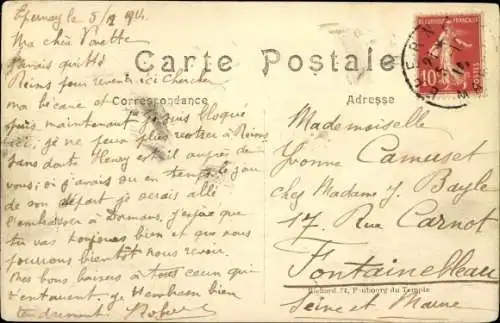 Epernay le 5/1 1914
Ma chère
J'avais quitté
Reims pour revenir ici chercher
ma bécane et
puis maintenant je suis bloqué
ici, je ne peux plus rentrer à Reims
sans doute Henry est-il auprès de
vous; si j'avais su en temps le jour
de son départ je serais allé
l'embrasser à Dormans. J'espère que
tu vas toujours bien et que nous
pourrons bientôt nous revoir.
Mes bons baisers à tous ceux qui
t'entourent. Je t'embrasse bien
tendrement
Carte Postale
Correspondance
Adresse
REPUBLIQUE FRANÇAISE
10c
POSTES
Mademoiselle
Yvonne Camuset
chez Madame J. Bayle
17, Rue Carnot
Fontainebleau
Richard, 84, Faubourg du Temple
Seine et Marne